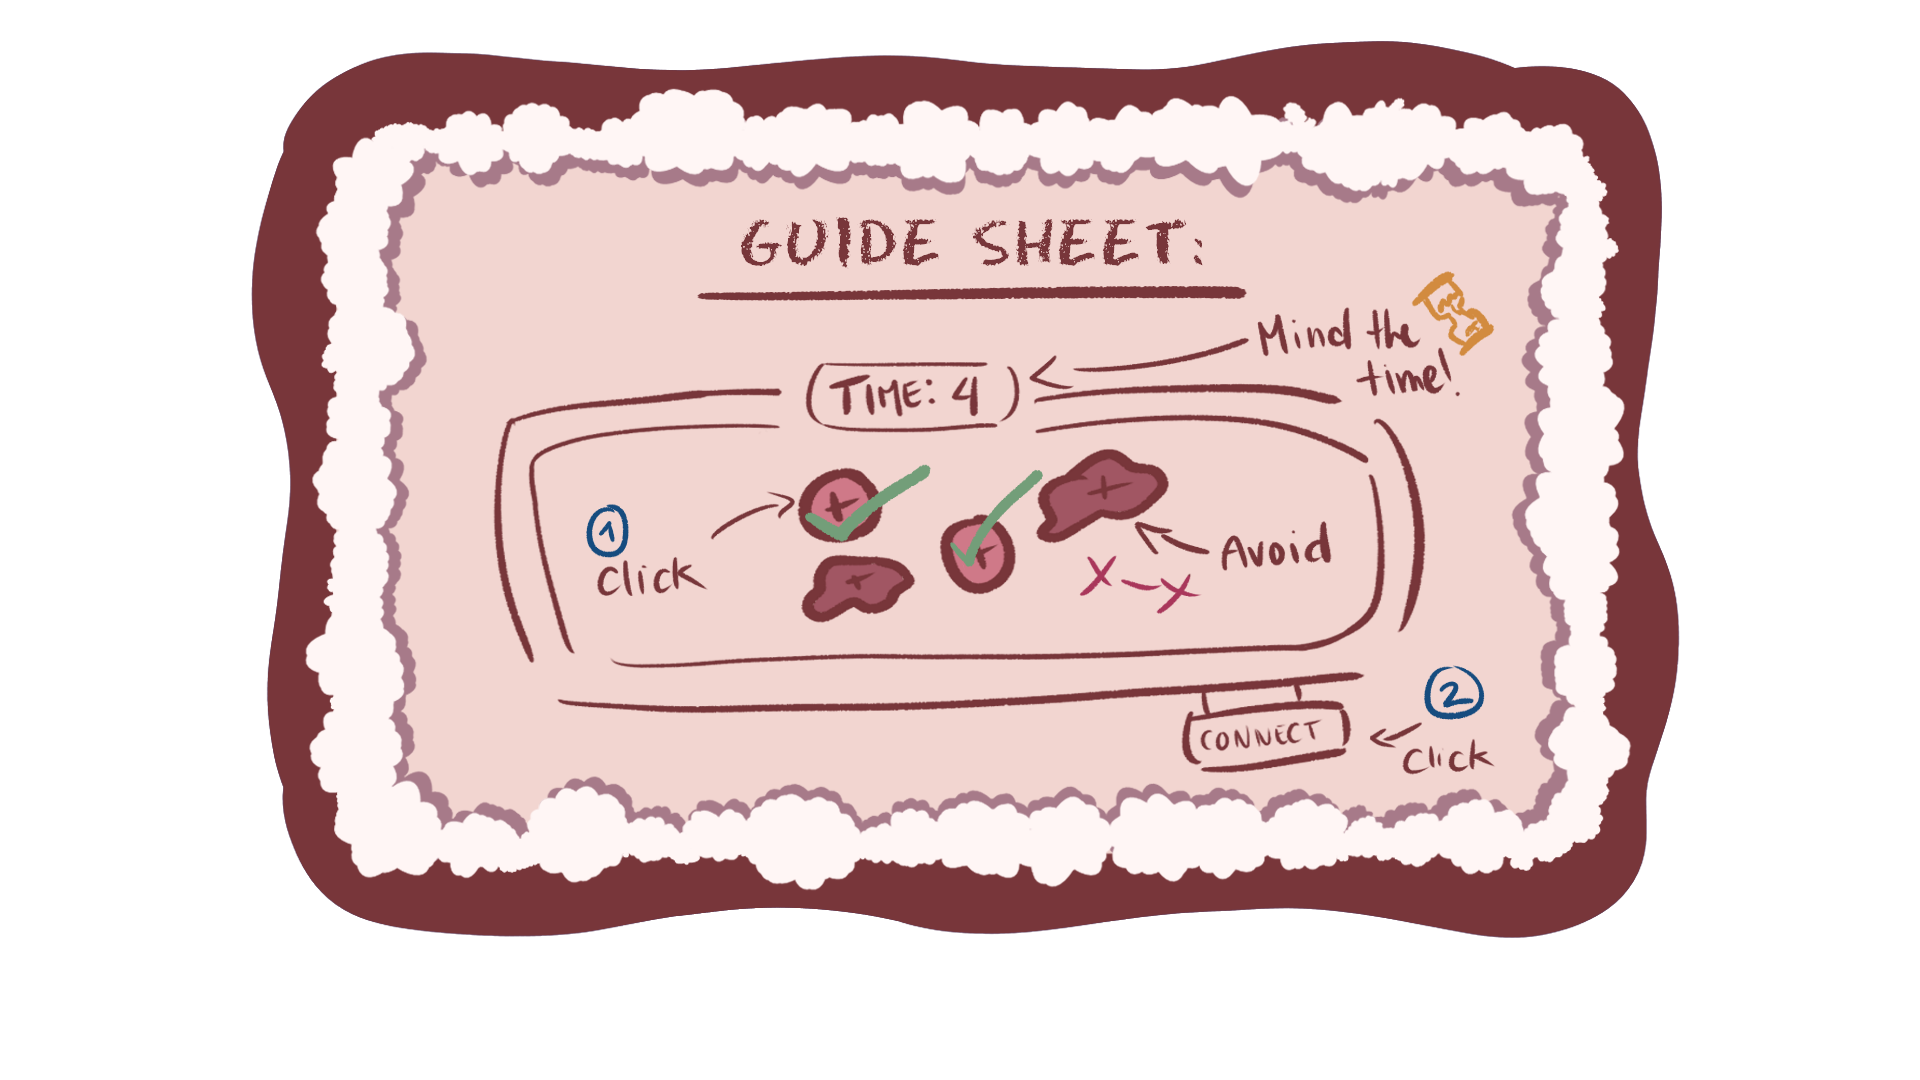 GUIDE SHEET:
Mind the
time!
TIME: 4
1
Click
Avoid
X-X
2
CONNECT
Click